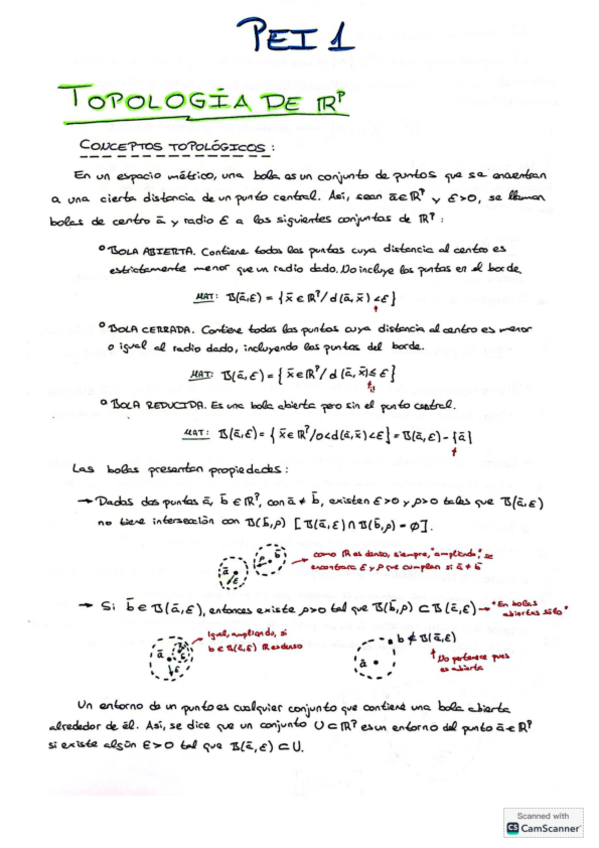 PEI 1
TOPOLOGÍA DE ℝᵖ
CONCEPTOS TOPOLÓGICOS:
En un espacio métrico, una bola es un conjunto de puntos que se encuentran
a una cierta distancia de un punto central. Así, sean ā∈ℝᵖ y ε>0, se llaman
bolas de centro ā y radio ε a los siguientes conjuntos de ℝᵖ:
° BOLA ABIERTA. Contiene todos los puntos cuya distancia al centro es
estrictamente menor que un radio dado. No incluye los puntos en el borde.
MAT: B(ā,ε) = { x̄ ∈ ℝᵖ / d(ā, x̄) < ε }
° BOLA CERRADA. Contiene todos los puntos cuya distancia al centro es menor
o igual al radio dado, incluyendo los puntos del borde.
MAT: B(ā, ε) = { x̄ ∈ ℝᵖ / d(ā, x̄) ≤ ε }
° BOLA REDUCIDA. Es una bola abierta pero sin el punto central.
MAT: B(ā,ε) = { x̄ ∈ ℝᵖ / 0<d(ā,x̄)<ε } = B(ā,ε) - {ā}
Las bolas presentan propiedades:
→ Dados dos puntos ā, b̄ ∈ ℝᵖ, con ā ≠ b̄, existen ε>0 y ρ>0 tales que B(ā,ε)
no tiene intersección con B(b̄,ρ) [B(ā,ε) ∩ B(b̄,ρ) = ∅].
ā ε ρ b̄ → como ℝ es denso, siempre, "ampliando", se
encontrará ε y ρ que cumplan si ā ≠ b̄
→ Si b̄ ∈ B(ā,ε), entonces existe ρ>0 tal que B(b̄,ρ) ⊂ B(ā,ε) → "En bolas
abiertas sólo"
Igual, ampliando, si
b ∈ B(ā,ε) ℝ es denso
ā ε
ā b ∉ B(ā,ε)
↑ No pertenece pues
es abierta
Un entorno de un punto es cualquier conjunto que contiene una bola abierta
alrededor de él. Así, se dice que un conjunto U⊂ℝᵖ es un entorno del punto ā∈ℝᵖ
si existe algún ε>0 tal que B(ā,ε) ⊂ U.
Scanned with
CS CamScanner